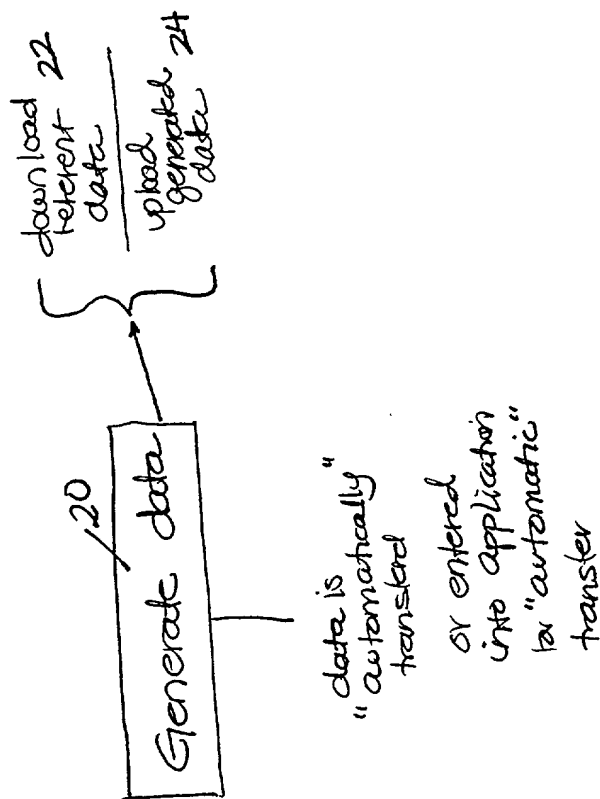 20
Generate data
download
referent 22
data
upload
generated 24
data
data is
"automatically"
transferd
or entered
into application
for "automatic"
transfer